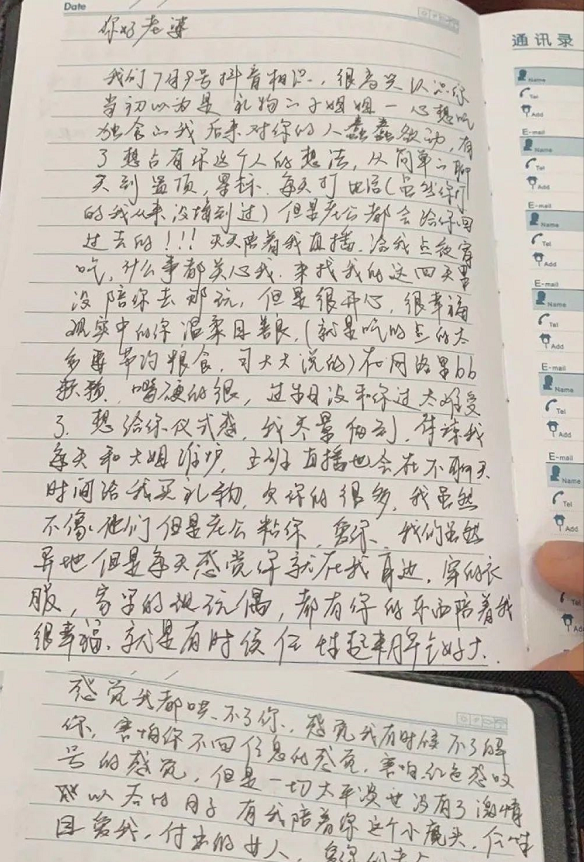 Date
你好老婆
我们7月9号抖音相识,很高兴认识你
当初以为是礼物小子姐姐一心想吃
独食的我后来对你的人蠢蠢欲动,有
了想占有你这个人的想法,从简单的聊
天到置顶,置标.每天打电话(虽然你打
的我从来没接到过)但是老公都会给你回
过去的!!!天天陪着我直播.给我点夜宵
吃,什么事都关心我.来找我的这四天里
没陪你去哪玩,但是很开心,很幸福
现实中的你温柔且善良,(就是吃的点的太
多要节约粮食,司大大说的)在网络里bb
嘴硬的很,过生日没和你过太难受
了.想给你仪式感,我尽量做到,体谅我
每天和大姐维护,上班直播也会在不聊天
时间给我买礼物,欠你的很多,我虽然
不像他们但是老公粘你,爱你.我们虽然
异地但是每天感觉你就在我身边,穿的衣
服,家里的玩偶,都有你的东西陪着我
很幸福、就是有时候任性起来脾气好大.
感觉我都哄不了你,感觉我有时候不了解
你,害怕你不回信息的感觉,害怕红色感叹
号的感觉,但是一切太平淡也没有了激情
以后的日子有我陪着你这个小魔头,任性
且爱我,付出的女人,
通讯录
Name
Tel
Add
E-mail
Name
Tel
Add
E-mail
Name
Tel
Add
E-mail
Name
Tel
Add
E-mail
Name
Tel
Add
E-mail
Name
Tel
Add